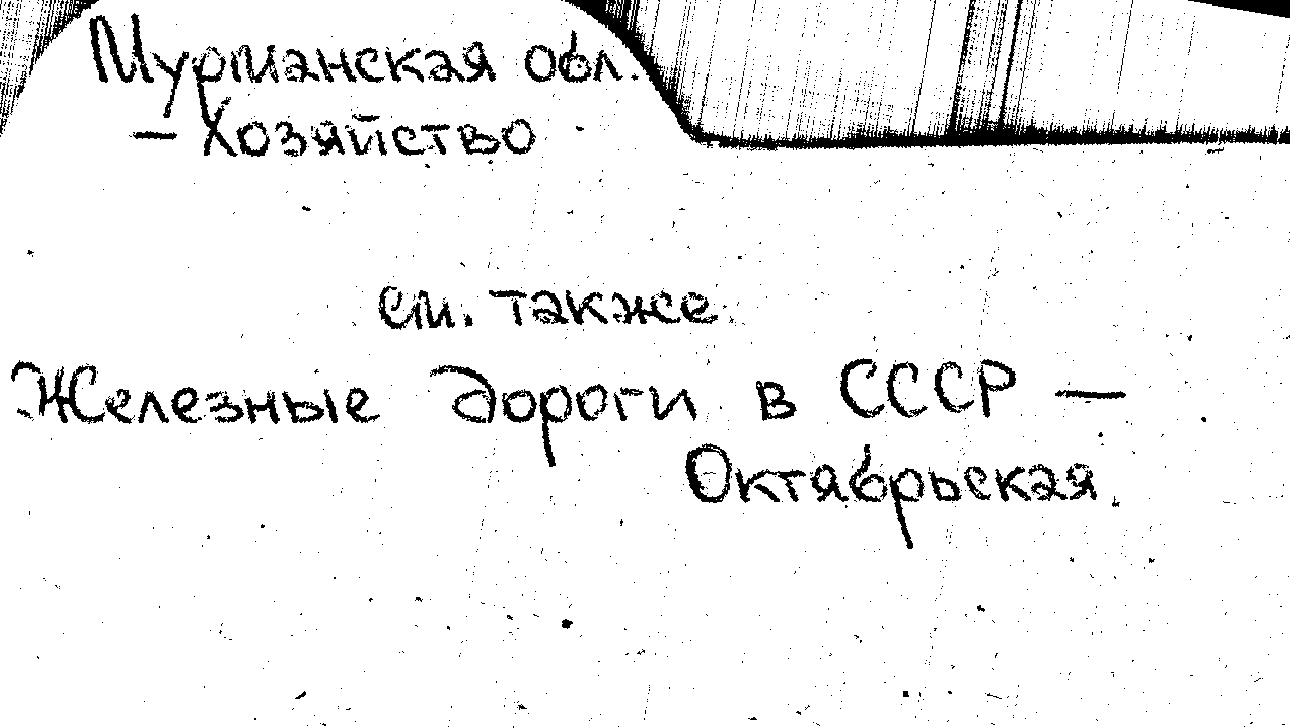 Мурманская обл.
— Хозяйство
см. также
Железные дороги в СССР —
Октябрьская